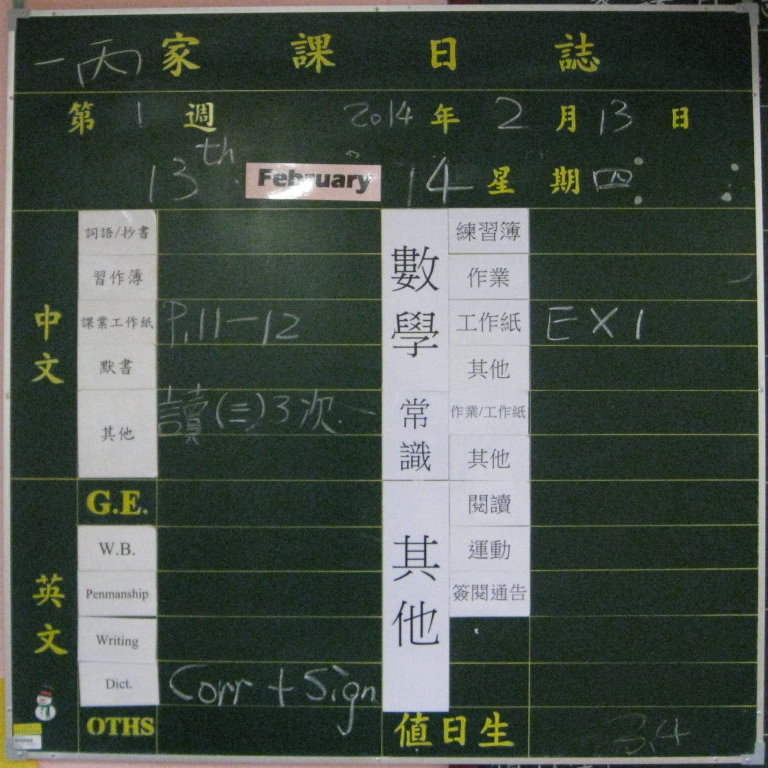 一丙家課日誌
第1週 2014年2月13日
13th February 14星期四
中文
詞語/抄書
習作簿
課業工作紙 P.11-12
默書
其他 讀(三)3次
英文
G.E.
W.B.
Penmanship
Writing
Dict. Corr + Sign
OTHS
數學
練習簿
作業
工作紙 EX1
其他
常識
作業/工作紙
其他
其他
閱讀
運動
簽閱通告
值日生 3,4